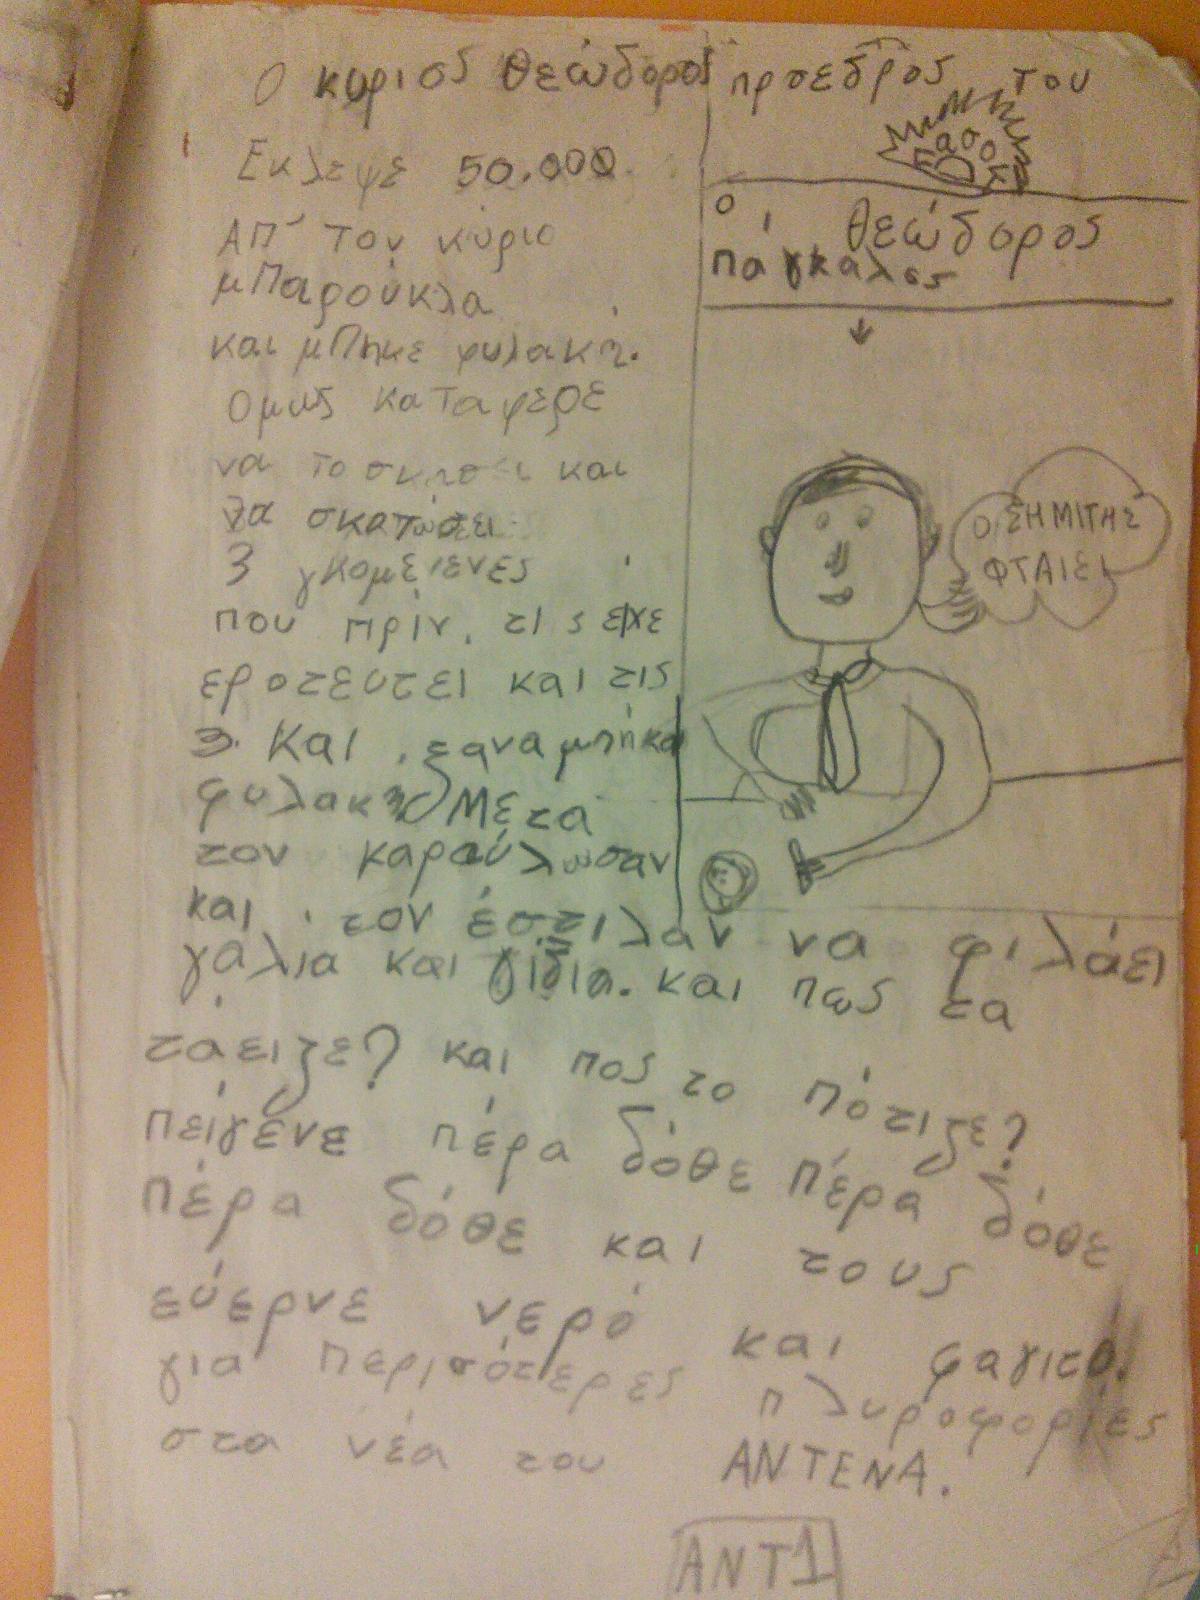 Ο κυριος θεώδορος προεδρος του
πασοκ
Εκλεψε 50.000
Απ' τον κύριο
μπαρούκλα
και μπηκε φυλακή.
Ομως καταφερε
να το σκησει και
να σκατώσει
3 γκομενες
που πρίν, τις είχε
εροτευτει και τις
3. Και ξαναμπήκα
φυλακη Μετα
τον καραύλωσαν
και τον έστιλαν να φιλάει
γαλια και γίδια. και πως τα
τάειζε? και πος το πότιζε?
πείγενε πέρα δόθε πέρα δόθε
πέρα δόθε και τους
εύερνε νερό και φαγιτό.
για περισότερες πλυροφορίες
στα νέα του ΑΝΤΕΝΑ.
ΑΝΤ1
ο θεώδορος
πάγκαλος
Ο ΣΗΜΙΤΗΣ
ΦΤΑΙΕΙ